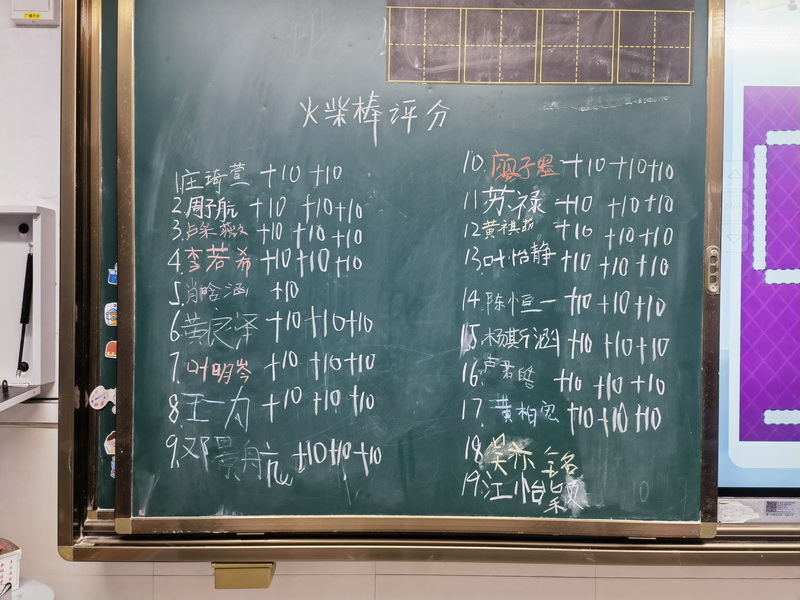 火柴棒评分
1.庄琦萱 +10 +10
2.周子航 +10 +10 +10
3. +10 +10 +10
4.李若希 +10 +10 +10
5.肖晗涵 +10
6.黄良泽 +10 +10 +10
7.叶明岑 +10 +10 +10
8.王一为 +10 +10 +10
9.邓景航 +10 +10 +10
10.廖子煜 +10 +10 +10
11苏禄 +10 +10 +10
12黄祺 +10 +10 +10
13叶怡静 +10 +10 +10
14.陈恒一 +10 +10 +10
15.杨斯涵 +10 +10 +10
16.卢君皓 +10 +10 +10
17.黄柏宏 +10 +10 +10
18.吴亦铭
19.江怡颖